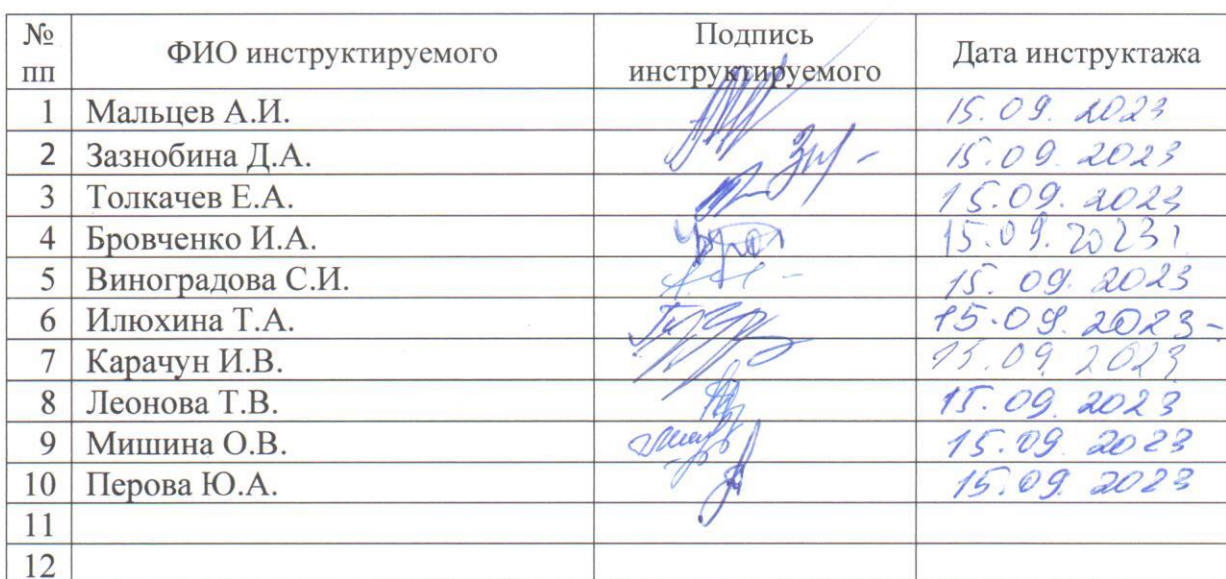 № пп ФИО инструктируемого Подпись инструктируемого Дата инструктажа
1 Мальцев А.И. 15.09.2023
2 Зазнобина Д.А. 15.09.2023
3 Толкачев Е.А. 15.09.2023
4 Бровченко И.А. 15.09.2023
5 Виноградова С.И. 15.09.2023
6 Илюхина Т.А. 15.09.2023
7 Карачун И.В. 15.09.2023
8 Леонова Т.В. 15.09.2023
9 Мишина О.В. 15.09.2023
10 Перова Ю.А. 15.09.2023
11
12